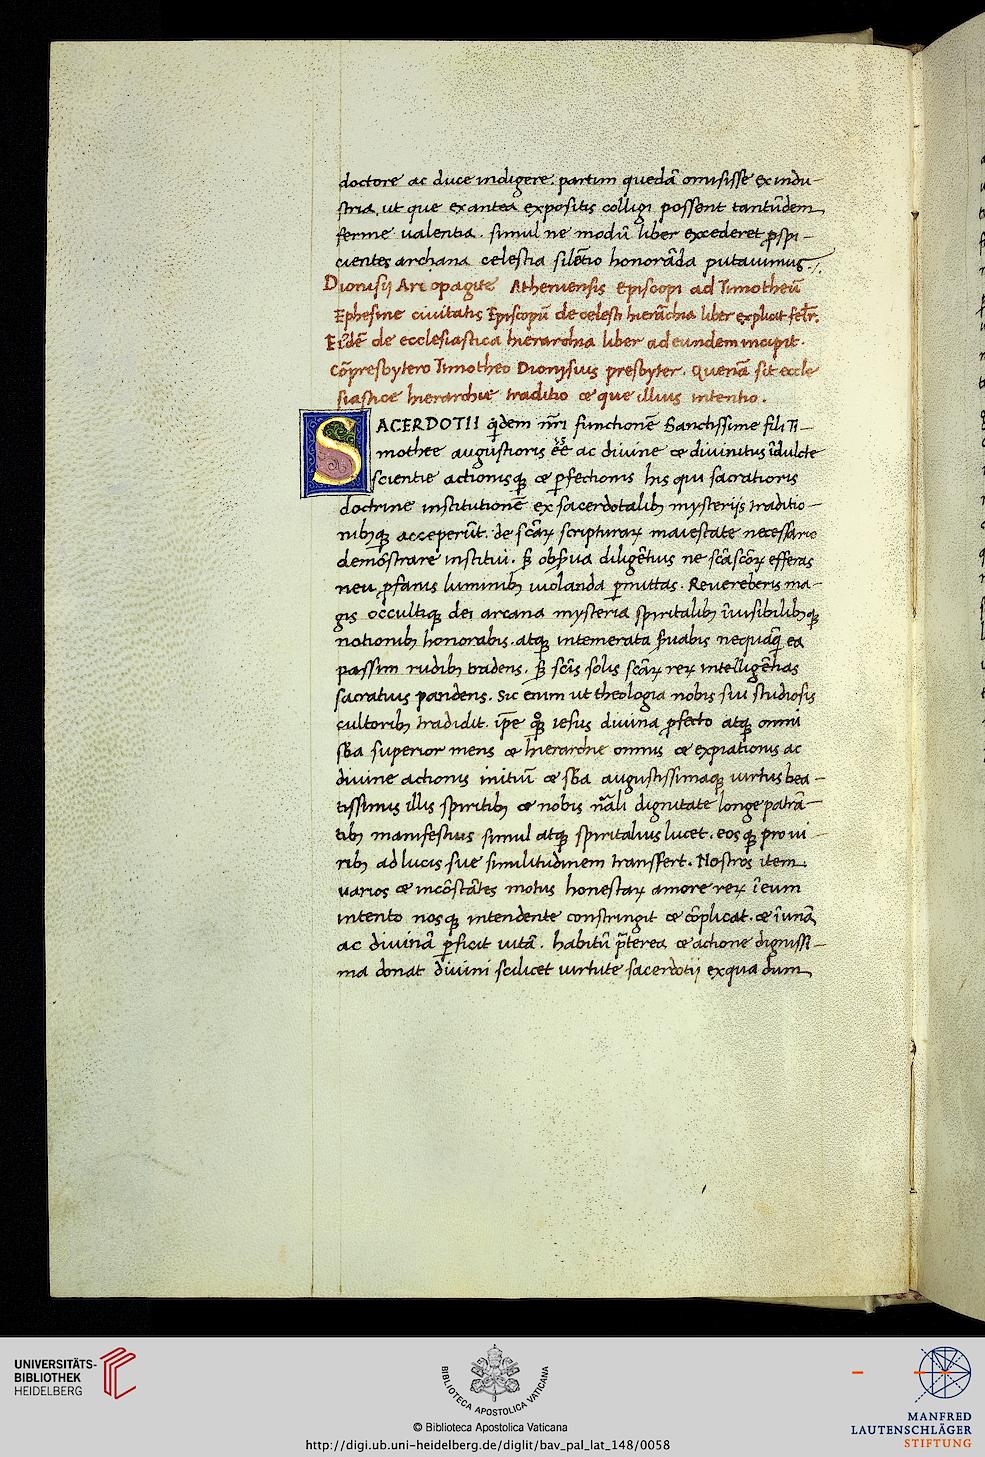 doctore ac duce indigere. partim quedā omisisse ex indu-
stria, ut que ex antea expositis colligi possent tantūdem
ferme ualentia. simul ne modū liber excederet ꝓspi-
cientes archana celestia silētio honorāda putauimus./.
Dionisij Ariopagite Atheniensis Episcopi ad Timotheū
Ephesine ciuitatis Episcopū de celesti hierarchia liber explicit
de ecclesiastica hierarchia liber ad eundem incipit.
Cōpresbytero Timotheo Dionysius presbyter. Quenā sit eccle
siastice hierarchie traditio & que illius intentio.
SACERDOTII qidem nr̄i functionē Sanctissime fili Ti-
mothee augustioris ēē ac diuine & diuinitus īdulcte
scientie actionisqꝫ & ꝑfectionis his qui sacratioris
doctrine institutionē ex sacerdotalibꝫ mysterijs traditio-
nibꝫqꝫ acceperūt. de scāꝝ scripturaꝝ maiestate necessario
demōstrare institui. Sꝫ obſ̄ua diligētius ne scāscōꝝ efferas
neu ꝓfanis luminibꝫ uiolanda ꝑmittas. Reuereberis ma-
gis occultiqꝫ dei arcana mysteria spiritalibꝫ īuisibilibꝫqꝫ
notionibꝫ honorabis. atqꝫ intemerata ſ̄uabis nequāqꝫ ea
passim rudibꝫ tradens. Sꝫ scīs solis scāꝝ reꝝ intelligētias
sacratius pandens. Sic enim ut theologia nobis sui studiosis
cultoribꝫ tradidit. ip̄e qꝫ iesus diuina ꝓfecto atqꝫ omni
sb̄a superior mens & hierarchie omnis & expiationis ac
diuine actionis initiū & sb̄a augustissimaqꝫ uirtus bea-
tissimis illis spiritibꝫ & nobis nāli dignitate longe patrā-
tibꝫ manifestius simul atqꝫ spiritalius lucet. eosqꝫ pro ui-
ribꝫ ad lucis sue similitudinem transfert. Nostros item
uarios & incōstātes motus honestaꝝ amore reꝝ ī eum
intento nosqꝫ intendente constringit & cōplicat. & ī unā
ac diuinā ꝑficit uitā. habitū p̄terea & actione dignissi-
ma donat diuini scilicet uirtute sacerdotij ex qua dum
UNIVERSITÄTS-
BIBLIOTHEK
HEIDELBERG
BIBLIOTECA APOSTOLICA VATICANA
© Biblioteca Apostolica Vaticana
http://digi.ub.uni-heidelberg.de/diglit/bav_pal_lat_148/0058
MANFRED
LAUTENSCHLÄGER
STIFTUNG